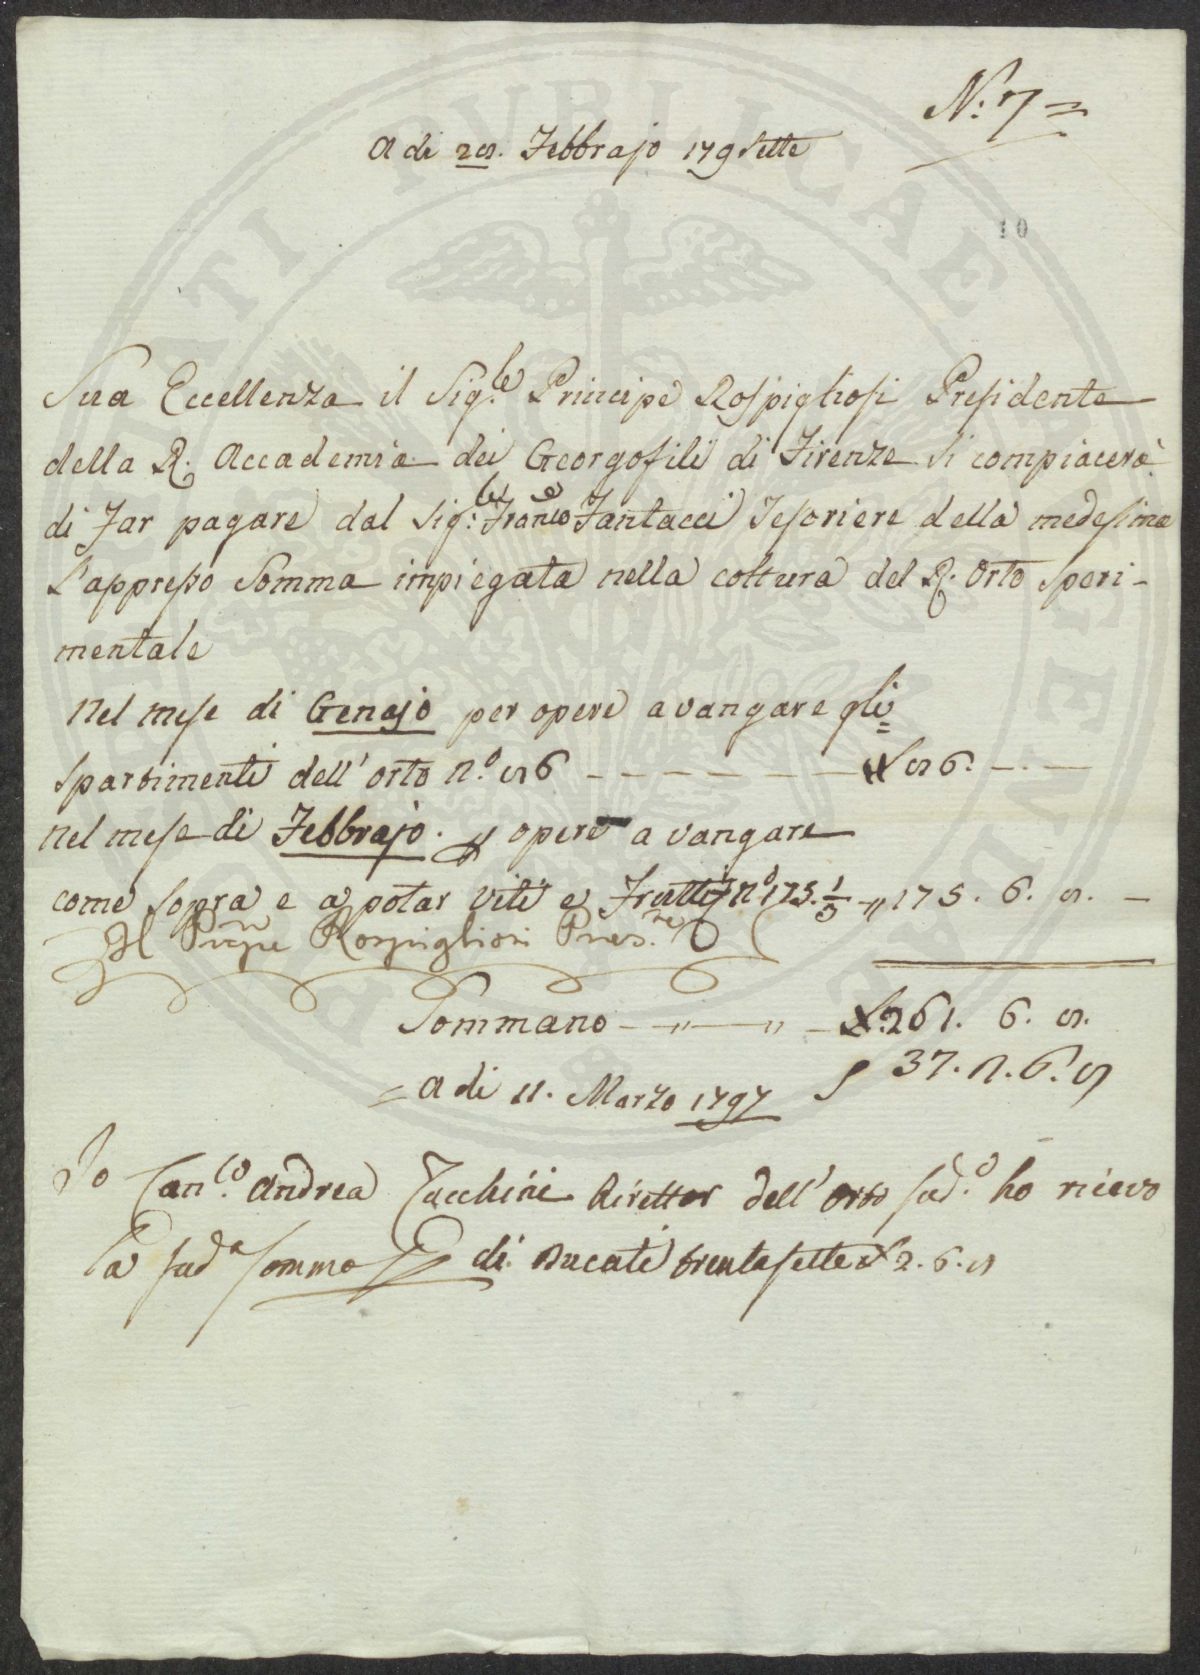 N.° 7 =
A di 28. Febbrajo 179 sette
10
Sua Eccellenza il Sig.re Principe Rospigliosi Presidente
della R. Accademia dei Georgofili di Firenze si compiacerà
di Far pagare dal Sig:re Franco Fantacci Tesoriere della medesima
L'appresso Somma impiegata nella coltura del R. Orto Speri-
mentale
nel mese di Genajo per opere a vangare gli
Spartimenti dell'orto n.° 86 - - - - - - - ₤ 86. - - -
nel mese di Febbrajo. " opere a vangare
come sopra e a potar viti e Frutti n.° 175. 1/3 - " 175. 6. 8. -
Il Pnpe Rospigliosi Pres.te
Sommano - - " - " - ₤. 261. 6. 8.
37. 2. 6. 8
= A di 11. Marzo 1797
Io Can.co Andrea Zucchini Direttor dell'Orto sud.o ho ricevo
La sud.a somma di Ducati trentasette ₤ 2. 6. 8
PROSPERITATI PVBLICAE AVGENDAE